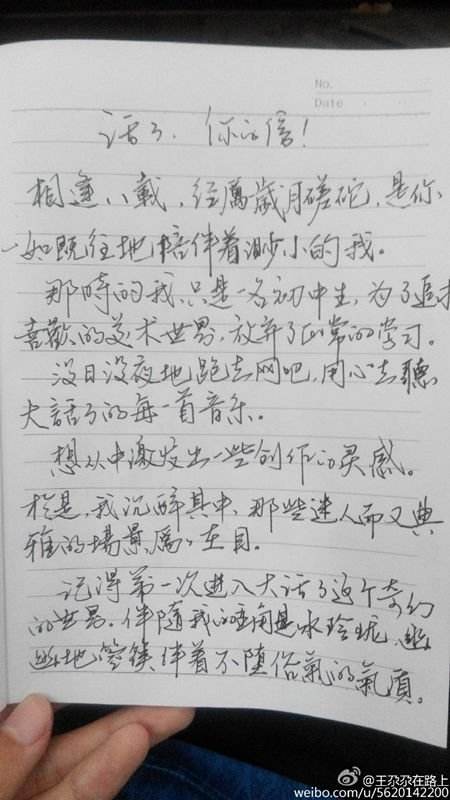 No.
Date
话3，你的信！
相逢八載，经厲歲月磋砣，是你
一如既往地陪伴着渺小的我。
那時的我，只是一名初中生，为了追求
喜歡的美术世界，放弃了正常的学习。
没日没夜地跑去网吧，用心去聽
大話3的每一首音乐。
想从中激发出一些创作的灵感。
於是，我沉醉其中，那些迷人而又典
雅的場景，厲厲在目。
记得第一次进入大话3这个奇幻
的世界，伴随我的主角是水玲珑，
地伴着不堕俗氣的氣质。
@王尕尕在路上
weibo.com/u/5620142200